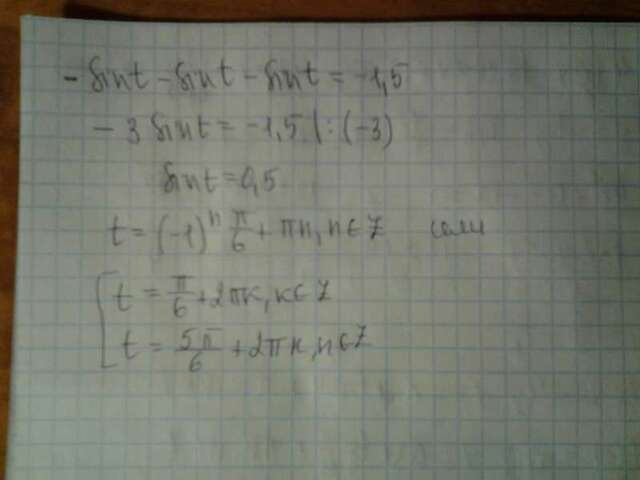 - sin t - sin t - sin t = -1,5
- 3 sin t = -1,5 | : (-3)
sin t = 0,5
t = (-1)ⁿ π/6 + πn, n ∈ Z
[ t = π/6 + 2πk, k ∈ Z
t = 5π/6 + 2πn, n ∈ Z